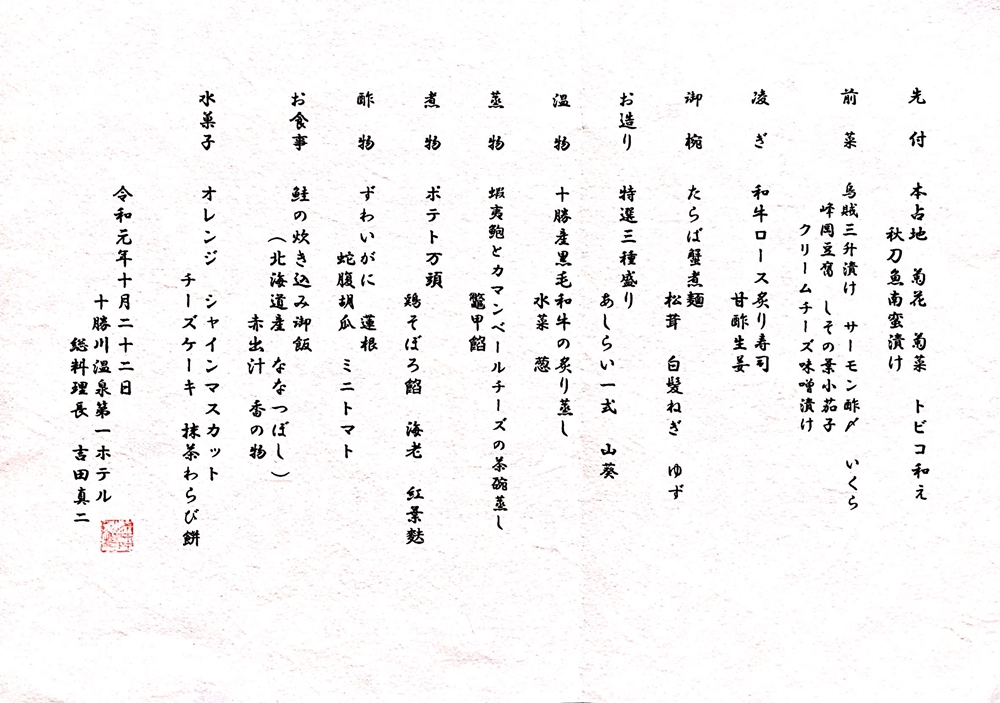 先付　本占地　菊花　菊菜　トビコ和え
秋刀魚南蛮漬け
前菜　烏賊三升漬け　サーモン酢〆　いくら
峰岡豆腐　しその葉小茄子
クリームチーズ味噌漬け
凌ぎ　和牛ロース炙り寿司
甘酢生姜
御椀　たらば蟹煮麺
松茸　白髪ねぎ　ゆず
お造り　特選三種盛り
あしらい一式　山葵
温物　十勝産黒毛和牛の炙り蒸し
水菜　葱
蒸物　蝦夷鮑とカマンベールチーズの茶碗蒸し
鼈甲餡
煮物　ポテト万頭
鶏そぼろ餡　海老　紅葉麩
酢物　ずわいがに　蓮根
蛇腹胡瓜　ミニトマト
お食事　鮭の炊き込み御飯
（北海道産　ななつぼし）
赤出汁　香の物
水菓子　オレンジ　シャインマスカット
チーズケーキ　抹茶わらび餅
令和元年十月二十二日
十勝川温泉第一ホテル
総料理長　吉田真二